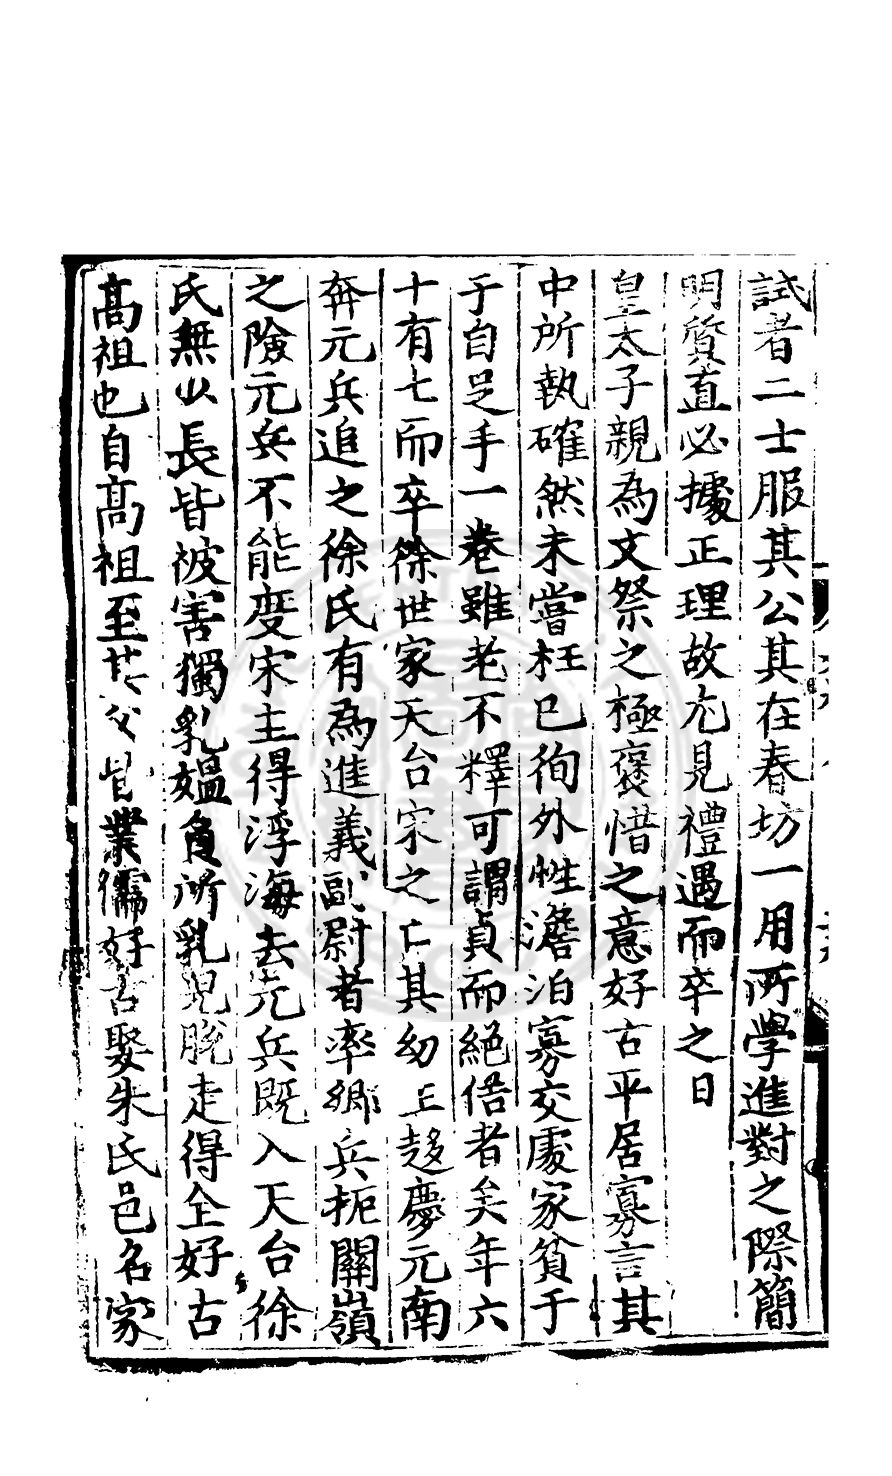 試者二士服其公其在春坊一用所學進對之際簡
明質直必據正理故尤見禮遇而卒之日
皇太子親為文祭之極褒惜之意好古平居寡言其
中所執確然未嘗枉已徇外性澹泊寡交處家貧于
于自足手一卷雖老不釋可謂貞而絕俗者矣年六
十有七而卒徐世家天台宋之亡其幼主趍慶元南
奔元兵追之徐氏有為進義副尉者率鄉兵扼關嶺
之險元兵不能度宋主得浮海去元兵既入天台徐
氏無少長皆被害獨乳媼負所乳兒脫走得全好古
髙祖也自髙祖至其父皆業儒好古娶朱氏邑名家